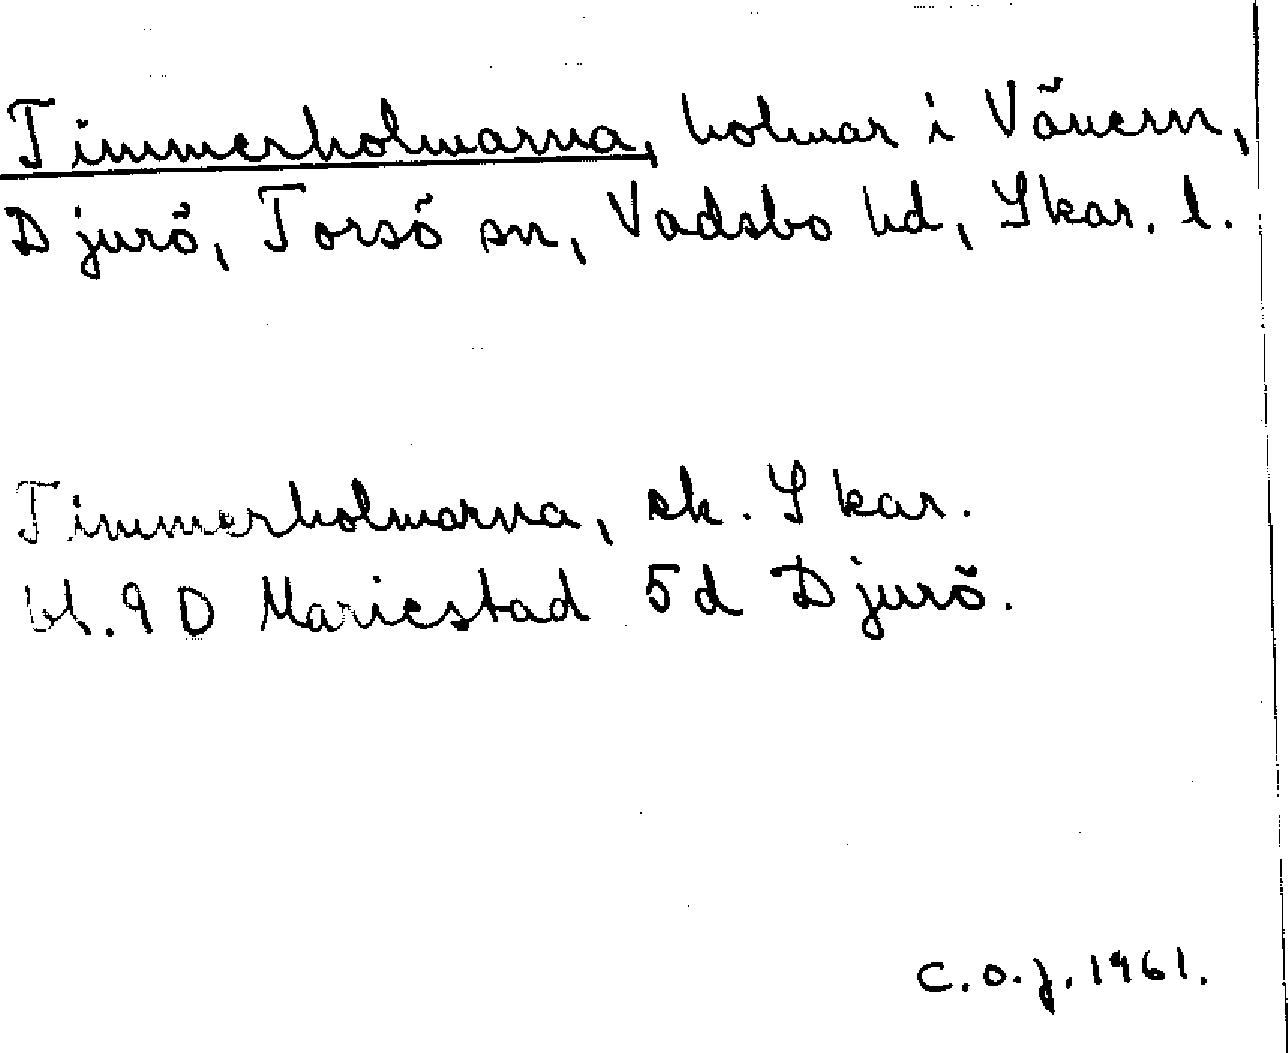 Timmerholmarna, holmar i Vänern,
Djurö, Torsö sn, Vadsbo hd, Skar. l.
Timmerholmarna, ek. Skar.
bl. 9 D Mariestad 5d Djurö.
C.O.J. 1961.